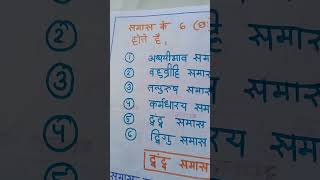 समास के 6
होते है,
① अव्ययीभाव समा
② बहुव्रीहि समास
③ तत्पुरुष समास
④ कर्मधारय सम
⑤ द्वंद्व समास
⑥ द्विगु समास
द्वंद्व समास